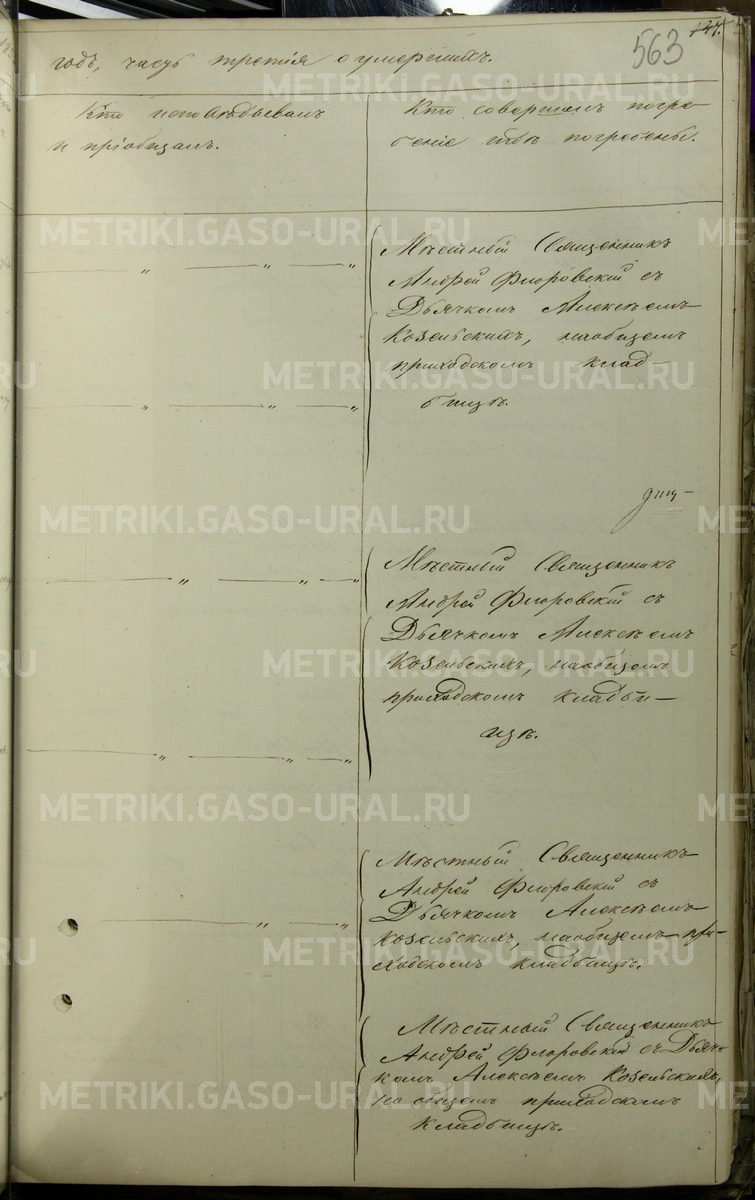 147.
563
годъ, часть третiя о умершихъ.
Кто исповѣдывалъ
и прiобщалъ.
Кто совершалъ погре-
бенiе и гдѣ погребены.
Мѣстный Священникъ
Андрей Флоровскiй съ
Дьячкомъ Алексѣемъ
Козельскимъ, на общемъ
приходскомъ клад-
бищѣ.
Мѣстный Священникъ
Андрей Флоровскiй съ
Дьячкомъ Алексѣемъ
Козельскимъ, на общемъ
приходскомъ кладби-
щѣ.
Мѣстный Священникъ
Андрей Флоровскiй съ
Дьячкомъ Алексѣемъ
Козельскимъ, на общемъ при-
ходскомъ кладбищѣ.
Мѣстный Священникъ
Андрей Флоровскiй съ Дьяч-
комъ Алексѣемъ Козельскимъ,
на общемъ приходскомъ
кладбищѣ.
METRIKI.GASO-URAL.RU